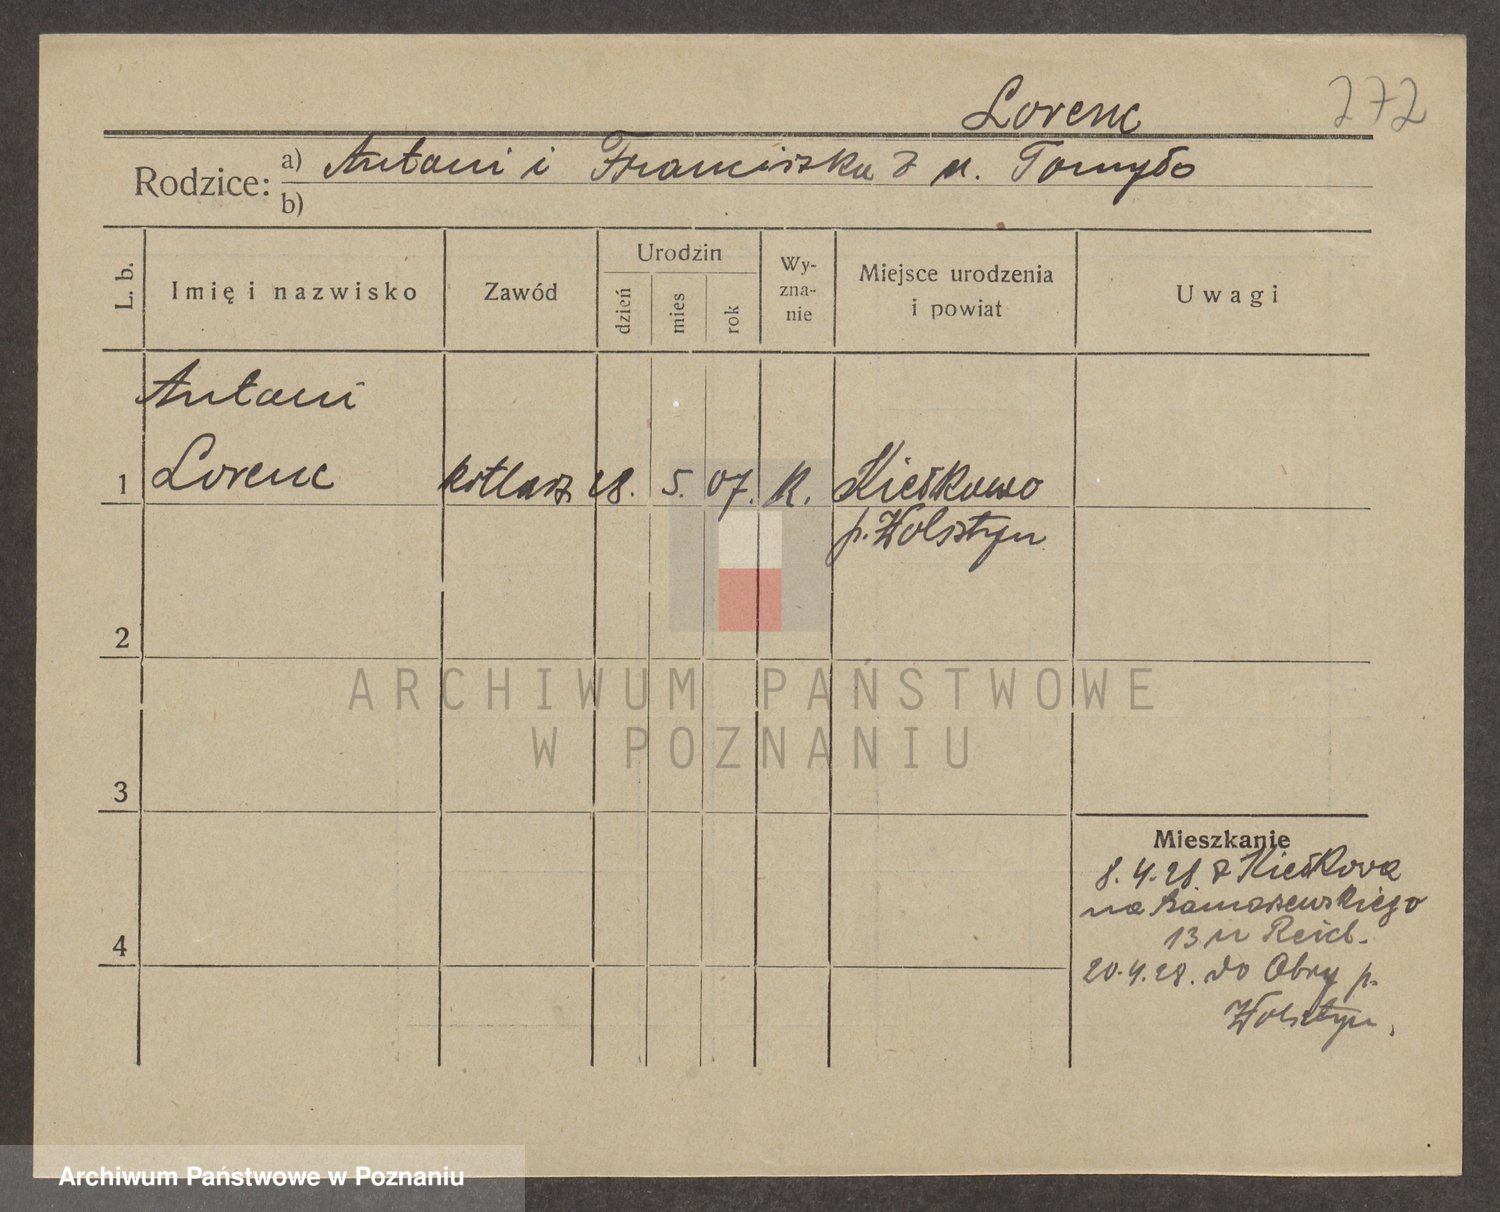 272
Lorenc
Rodzice: a) Antoni i Franciszka z u. Tomyśo
b)
L. b.
Imię i nazwisko
Zawód
Urodzin
dzień
mies
rok
Wy-
zna-
nie
Miejsce urodzenia
i powiat
Uwagi
Antoni
1 Lorenc kotlarz 28. 5. 07. R. Kiełkowo
p. Wolsztyn
2
3
4
Mieszkanie
8.4.28 z Kiełkowa
na
13 u Reich.
20.4.28. do Obry p.
Wolsztyn.
ARCHIWUM PAŃSTWOWE
W POZNANIU
Archiwum Państwowe w Poznaniu